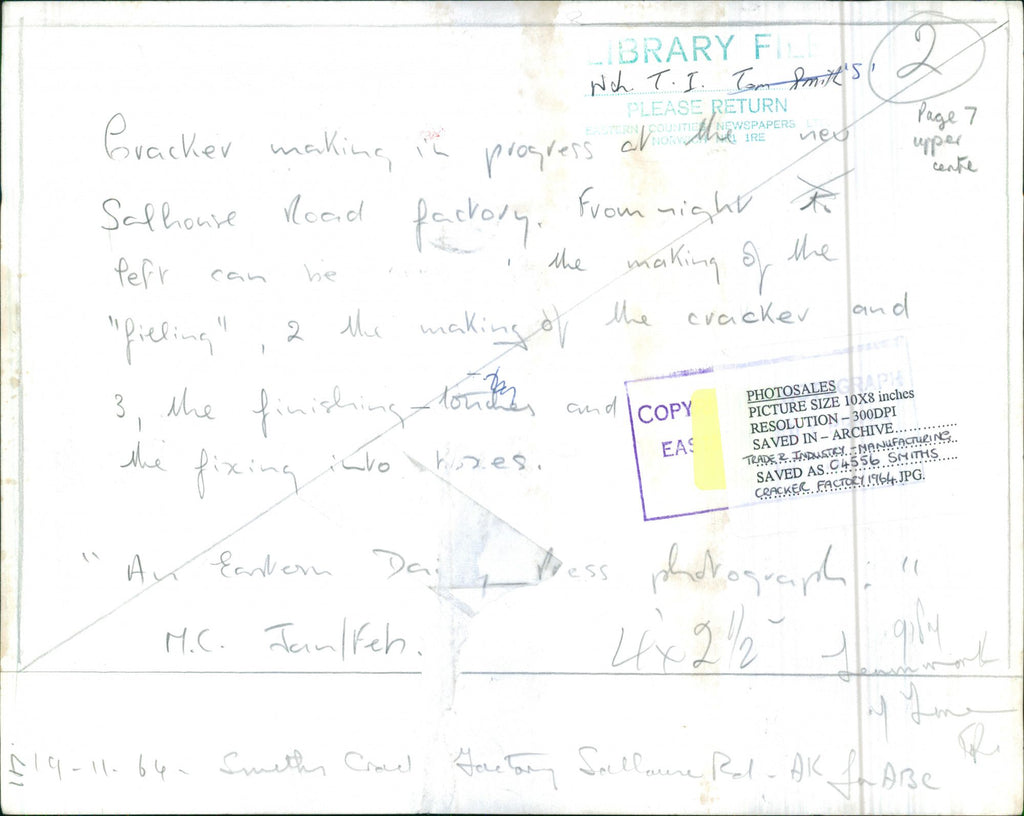 LIBRARY FILE
Nch. T. I. Tom Smith's'
PLEASE RETURN
EASTERN COUNTIES NEWSPAPERS LTD
NORWICH NR1 1RE
2
Page 7
upper
centre
Cracker making in progress at the new
Salhouse Road factory. From right to
left can be the making of the
"filling", 2 the making of the cracker and
3, the finishing touches and
the fixing into boxes.
COPY
EAS
PHOTOSALES
PICTURE SIZE 10X8 inches
RESOLUTION – 300DPI
SAVED IN – ARCHIVE
TRADE & INDUSTRY - MANUFACTURING
SAVED AS C4556 SMITHS
CRACKER FACTORY 1964.JPG.
"An Eastern Daily Press photograph."
M.C. Jan/Feb.
4" x 2 1/2"
19-11-64 - Smiths Crac Factory Salhouse Rd - AK for ABC